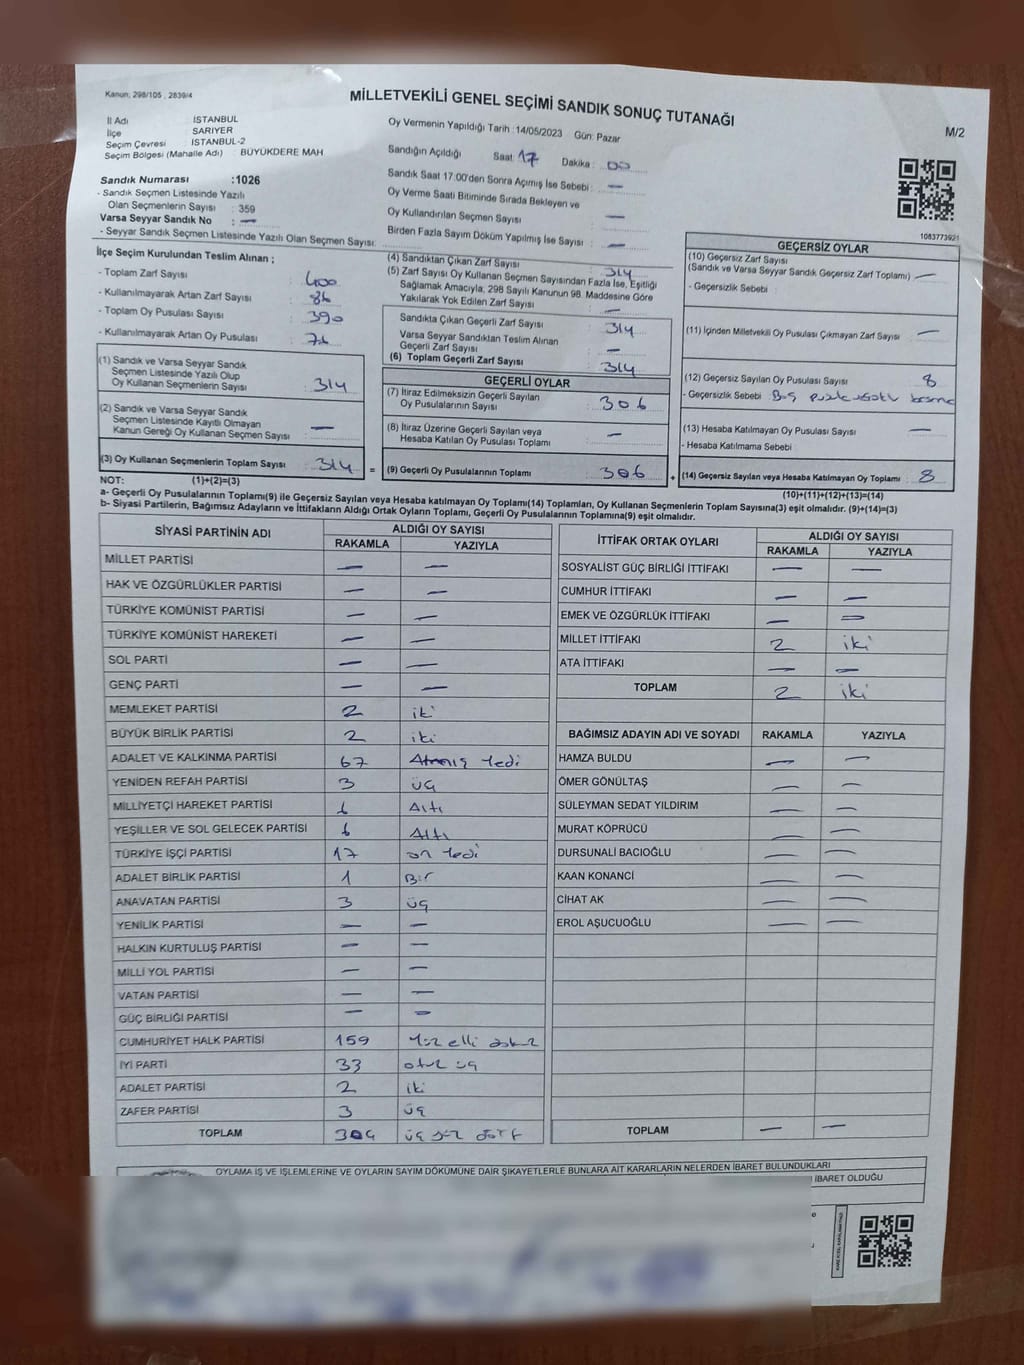 Kanun; 298/105 , 2839/4
MİLLETVEKİLİ GENEL SEÇİMİ SANDIK SONUÇ TUTANAĞI
M/2
İl Adı : İSTANBUL
İlçe : SARIYER
Seçim Çevresi : İSTANBUL-2
Seçim Bölgesi (Mahalle Adı) : BÜYÜKDERE MAH
Sandık Numarası :1026
- Sandık Seçmen Listesinde Yazılı
Olan Seçmenlerin Sayısı : 359
Varsa Seyyar Sandık No : —
- Seyyar Sandık Seçmen Listesinde Yazılı Olan Seçmen Sayısı:
Oy Vermenin Yapıldığı Tarih :14/05/2023 Gün: Pazar
Sandığın Açıldığı Saat: 17 Dakika : 00
Sandık Saat 17:00'den Sonra Açımış İse Sebebi : —
Oy Verme Saati Bitiminde Sırada Bekleyen ve
Oy Kullandırılan Seçmen Sayısı : —
Birden Fazla Sayım Döküm Yapılmış İse Sayısı : —
1083773921
İlçe Seçim Kurulundan Teslim Alınan ;
- Toplam Zarf Sayısı : 400
- Kullanılmayarak Artan Zarf Sayısı : 86
- Toplam Oy Pusulası Sayısı : 390
- Kullanılmayarak Artan Oy Pusulası : 76
(1) Sandık ve Varsa Seyyar Sandık
Seçmen Listesinde Yazılı Olup
Oy Kullanan Seçmenlerin Sayısı : 314
(2) Sandık ve Varsa Seyyar Sandık
Seçmen Listesinde Kayıtlı Olmayan
Kanun Gereği Oy Kullanan Seçmen Sayısı : —
(3) Oy Kullanan Seçmenlerin Toplam Sayısı : 314 =
(4) Sandıktan Çıkan Zarf Sayısı : 314
(5) Zarf Sayısı Oy Kullanan Seçmen Sayısından Fazla İse, Eşitliği
Sağlamak Amacıyla, 298 Sayılı Kanunun 98. Maddesine Göre
Yakılarak Yok Edilen Zarf Sayısı : —
Sandıkta Çıkan Geçerli Zarf Sayısı : 314
Varsa Seyyar Sandıktan Teslim Alınan
Geçerli Zarf Sayısı : —
(6) Toplam Geçerli Zarf Sayısı : 314
GEÇERLİ OYLAR
(7) İtiraz Edilmeksizin Geçerli Sayılan
Oy Pusulalarının Sayısı : 306
(8) İtiraz Üzerine Geçerli Sayılan veya
Hesaba Katılan Oy Pusulası Toplamı : —
(9) Geçerli Oy Pusulalarının Toplamı : 306 +
GEÇERSİZ OYLAR
(10) Geçersiz Zarf Sayısı
(Sandık ve Varsa Seyyar Sandık Geçersiz Zarf Toplamı) —
- Geçersizlik Sebebi :
(11) İçinden Milletvekili Oy Pusulası Çıkmayan Zarf Sayısı : —
(12) Geçersiz Sayılan Oy Pusulası Sayısı : 8
- Geçersizlik Sebebi
(13) Hesaba Katılmayan Oy Pusulası Sayısı : —
- Hesaba Katılmama Sebebi
(14) Geçersiz Sayılan veya Hesaba Katılmayan Oy Toplamı : 8
NOT: (1)+(2)=(3)
(10)+(11)+(12)+(13)=(14)
a- Geçerli Oy Pusulalarının Toplamı(9) ile Geçersiz Sayılan veya Hesaba katılmayan Oy Toplamı(14) Toplamları, Oy Kullanan Seçmenlerin Toplam Sayısına(3) eşit olmalıdır. (9)+(14)=(3)
b- Siyasi Partilerin, Bağımsız Adayların ve İttifakların Aldığı Ortak Oyların Toplamı, Geçerli Oy Pusulalarının Toplamına(9) eşit olmalıdır.
SİYASİ PARTİNİN ADI ALDIĞI OY SAYISI
RAKAMLA YAZIYLA
MİLLET PARTİSİ — —
HAK VE ÖZGÜRLÜKLER PARTİSİ — —
TÜRKİYE KOMÜNİST PARTİSİ — —
TÜRKİYE KOMÜNİST HAREKETİ — —
SOL PARTİ — —
GENÇ PARTİ — —
MEMLEKET PARTİSİ 2 iki
BÜYÜK BİRLİK PARTİSİ 2 iki
ADALET VE KALKINMA PARTİSİ 67 Atmış Yedi
YENİDEN REFAH PARTİSİ 3 üç
MİLLİYETÇİ HAREKET PARTİSİ 6 Altı
YEŞİLLER VE SOL GELECEK PARTİSİ 6 Altı
TÜRKİYE İŞÇİ PARTİSİ 17 on Yedi
ADALET BİRLİK PARTİSİ 1 Bir
ANAVATAN PARTİSİ 3 üç
YENİLİK PARTİSİ — —
HALKIN KURTULUŞ PARTİSİ — —
MİLLİ YOL PARTİSİ — —
VATAN PARTİSİ — —
GÜÇ BİRLİĞİ PARTİSİ — —
CUMHURİYET HALK PARTİSİ 159 Yüz elli dokuz
İYİ PARTİ 33 otuz üç
ADALET PARTİSİ 2 iki
ZAFER PARTİSİ 3 üç
TOPLAM 304 üç yüz dört
İTTİFAK ORTAK OYLARI ALDIĞI OY SAYISI
RAKAMLA YAZIYLA
SOSYALİST GÜÇ BİRLİĞİ İTTİFAKI — —
CUMHUR İTTİFAKI — —
EMEK VE ÖZGÜRLÜK İTTİFAKI — —
MİLLET İTTİFAKI 2 iki
ATA İTTİFAKI — —
TOPLAM 2 iki
BAĞIMSIZ ADAYIN ADI VE SOYADI RAKAMLA YAZIYLA
HAMZA BULDU — —
ÖMER GÖNÜLTAŞ — —
SÜLEYMAN SEDAT YILDIRIM — —
MURAT KÖPRÜCÜ — —
DURSUNALİ BACIOĞLU — —
KAAN KONANCİ — —
CİHAT AK — —
EROL AŞUCUOĞLU — —
TOPLAM — —
OYLAMA İŞ VE İŞLEMLERİNE VE OYLARIN SAYIM DÖKÜMÜNE DAİR ŞİKAYETLERLE BUNLARA AİT KARARLARIN NELERDEN İBARET BULUNDUKLARI
İBARET OLDUĞU